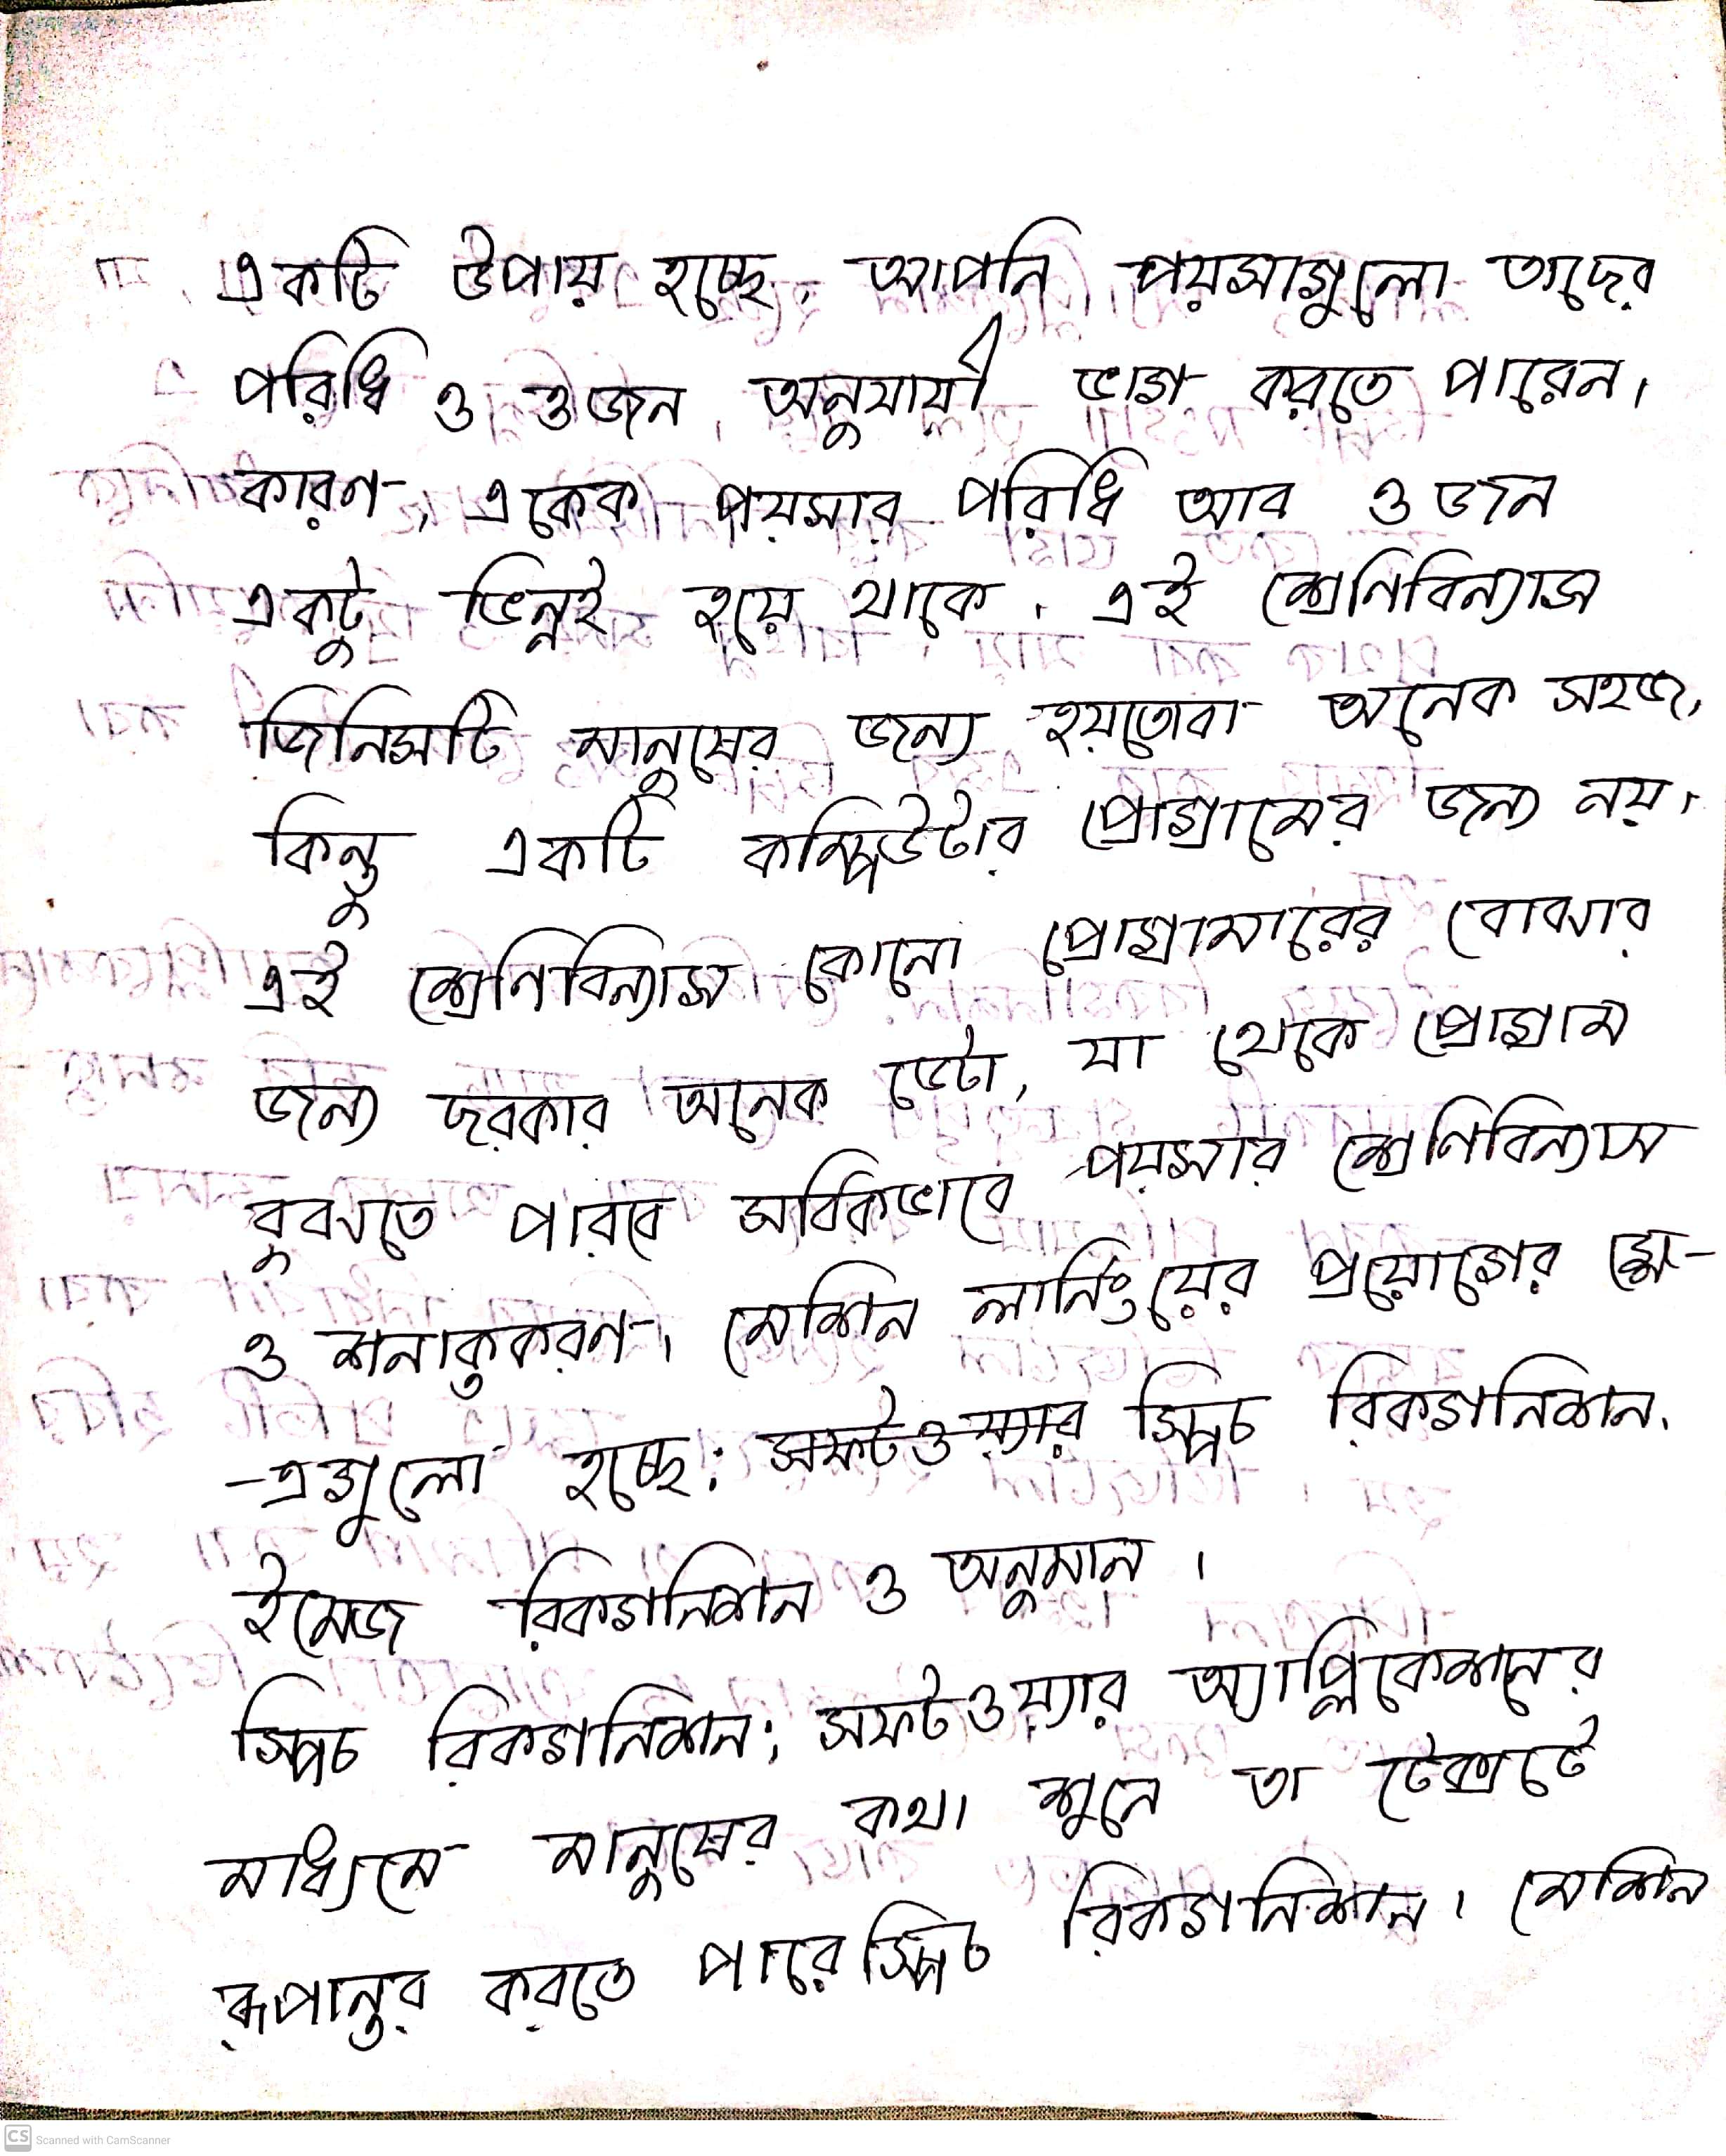 একটি উপায় হচ্ছে, আপনি পয়সাগুলো তাদের
পরিধি ও ওজন অনুযায়ী ভাগ করতে পারেন।
কারণ, একেক পয়সার পরিধি আর ওজন
একটু ভিন্নই হয়ে থাকে। এই শ্রেণিবিন্যাস
জিনিসটি মানুষের জন্য হয়তোবা অনেক সহজ,
কিন্তু একটি কম্পিউটার প্রোগ্রামের জন্য নয়।
এই শ্রেণিবিন্যাস কোনো প্রোগ্রামারের বোঝার
জন্য দরকার অনেক ডেটা, যা থেকে প্রোগ্রাম
বুঝতে পারবে সঠিকভাবে পয়সার শ্রেণিবিন্যাস
ও শনাক্তকরণ। মেশিন লার্নিংয়ের প্রয়োগের ক্ষে-
-ত্রগুলো হচ্ছে: সফটওয়্যার স্পিচ রিকগনিশন,
ইমেজ রিকগনিশন ও অনুমান।
স্পিচ রিকগনিশন: সফটওয়্যার অ্যাপ্লিকেশনের
মাধ্যমে মানুষের কথা শুনে তা টেক্সটে
রূপান্তর করতে পারে স্পিচ রিকগনিশন। মেশিন
Scanned with CamScanner